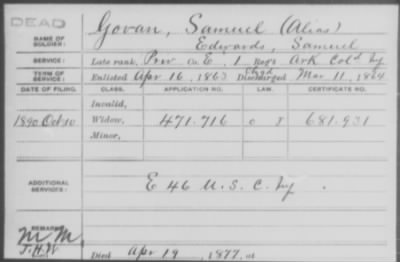 DEAD
Govan, Samuel (Alias)
NAME OF SOLDIER: Edwards, Samuel
SERVICE: Late rank, Priv Co. E, 1 Reg't Ark Col'd Inf
TERM OF SERVICE: Enlisted Apr 16, 1863 Discharged Mar 11, 1864
DATE OF FILING. CLASS. APPLICATION NO. LAW. CERTIFICATE NO.
Invalid,
1890 Oct 10 Widow, 471.716 681.931
Minor,
ADDITIONAL SERVICES: E 46 U.S.C. Inf.
REMARKS:
M M.
J.H.W.
Died Apr 19, 1877, at